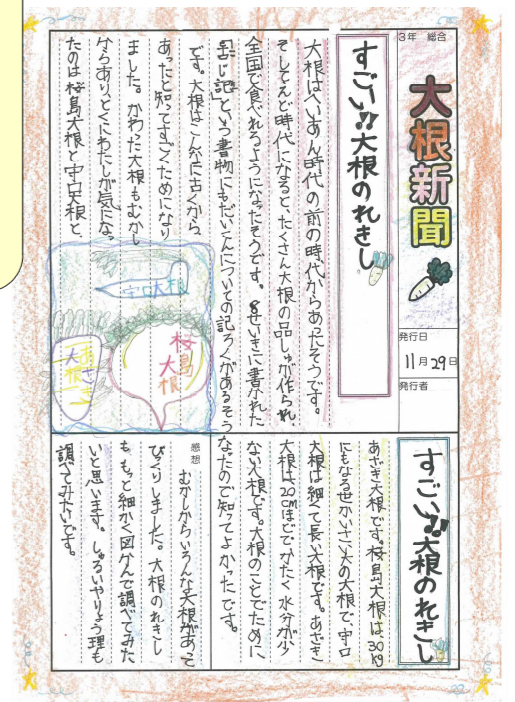 3年 総合
大根新聞
発行日
11月29日
発行者
すごい!!大根のれきし
大根はへいあん時代の前の時代からあったそうです。
そしてえど時代になると、たくさん大根の品しゅが作られ、
全国で食べれるようになったそうです。8せいきに書かれた
「古じ記」という書物にもだいこんについての記ろくがあるそう
です。大根はこんなに古くから
あったと知ってすごくためになり
ました。かわった大根もむかし
からありとくにわたしが気になっ
たのは桜島大根と守口大根と、
守口大根
桜島大根
あざき大根
すごい!!大根のれきし
あざき大根です。桜島大根は、30kg
にもなるせかいさい大の大根で、守口
大根は細くて長い大根です。あざき
大根は20cmほどでかたく水分が少
ない大根です。大根のことでために
なったので知ってよかったです。
感想
むかしからいろんな大根があって
びっくりしました。大根のれきし
も、もっと細かく図かんで調べてみた
いと思います。しゅるいやりょう理も
調べてみたいです。